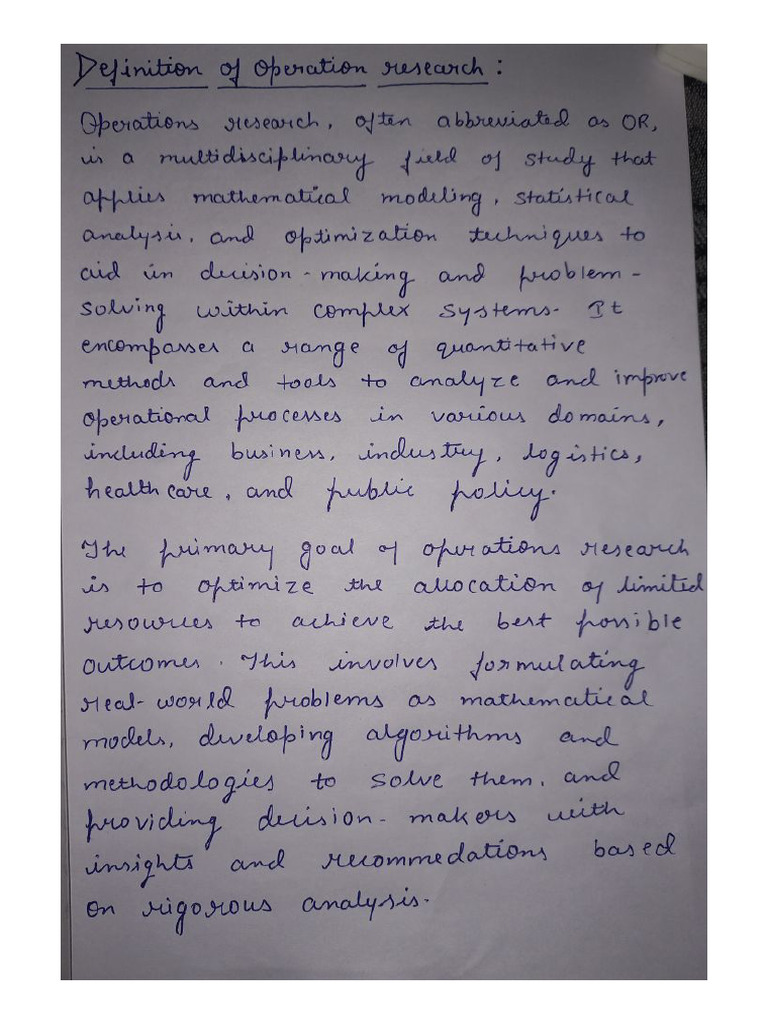 Definition of operation research :
Operations research, often abbreviated as OR,
is a multidisciplinary field of study that
applies mathematical modeling, statistical
analysis, and optimization techniques to
aid in decision-making and problem-
solving within complex systems. It
encompasses a range of quantitative
methods and tools to analyze and improve
operational processes in various domains,
including business, industry, logistics,
healthcare, and public policy.
The primary goal of operations research
is to optimize the allocation of limited
resources to achieve the best possible
outcomes. This involves formulating
real-world problems as mathematical
models, developing algorithms and
methodologies to solve them, and
providing decision-makers with
insights and recommedations based
on rigorous analysis.